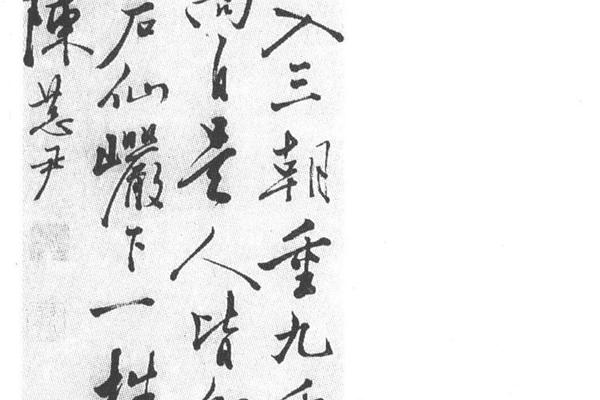 入三朝重九
自是人皆
石仙巖下一
陳恭尹